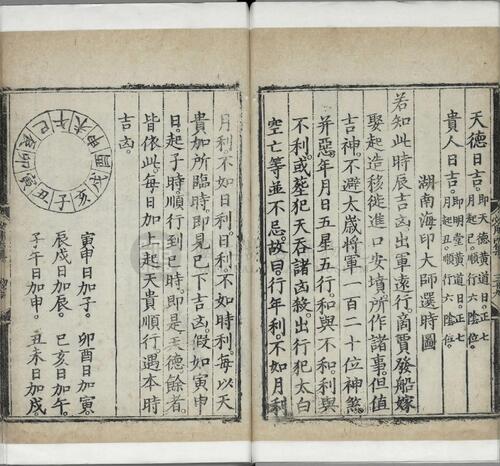 天德日吉。即天德黃道日。正七
月起巳。順行六陰位。
貴人日吉。即明堂黃道日。正七
月起丑順行六陰位。
湖南海印大師選時圖
若知此時辰吉凶出軍遠行。商賈發船嫁
娶起造移徙進口安墳所作諸事。但值
吉神。不避太歲將軍一百二十位神煞。
并惡年月日五星五行。和與不和。利與
不利。或葬犯天吞諸凶殺。出行犯太白
空亡等並不忌。故曰。行年利。不如月利
月利不如日利。日利。不如時利。每以天
貴加所臨時即見巳下吉凶。假如寅申
日。起子時。順行到巳時。即是天德餘者。
皆依此。每日加上起天貴順行遇本時
吉凶。
子丑寅卯辰巳午未申酉戌亥
寅申日加子。卯酉日加寅。
辰戌日加辰。巳亥日加午。
子午日加申。丑未日加戌。